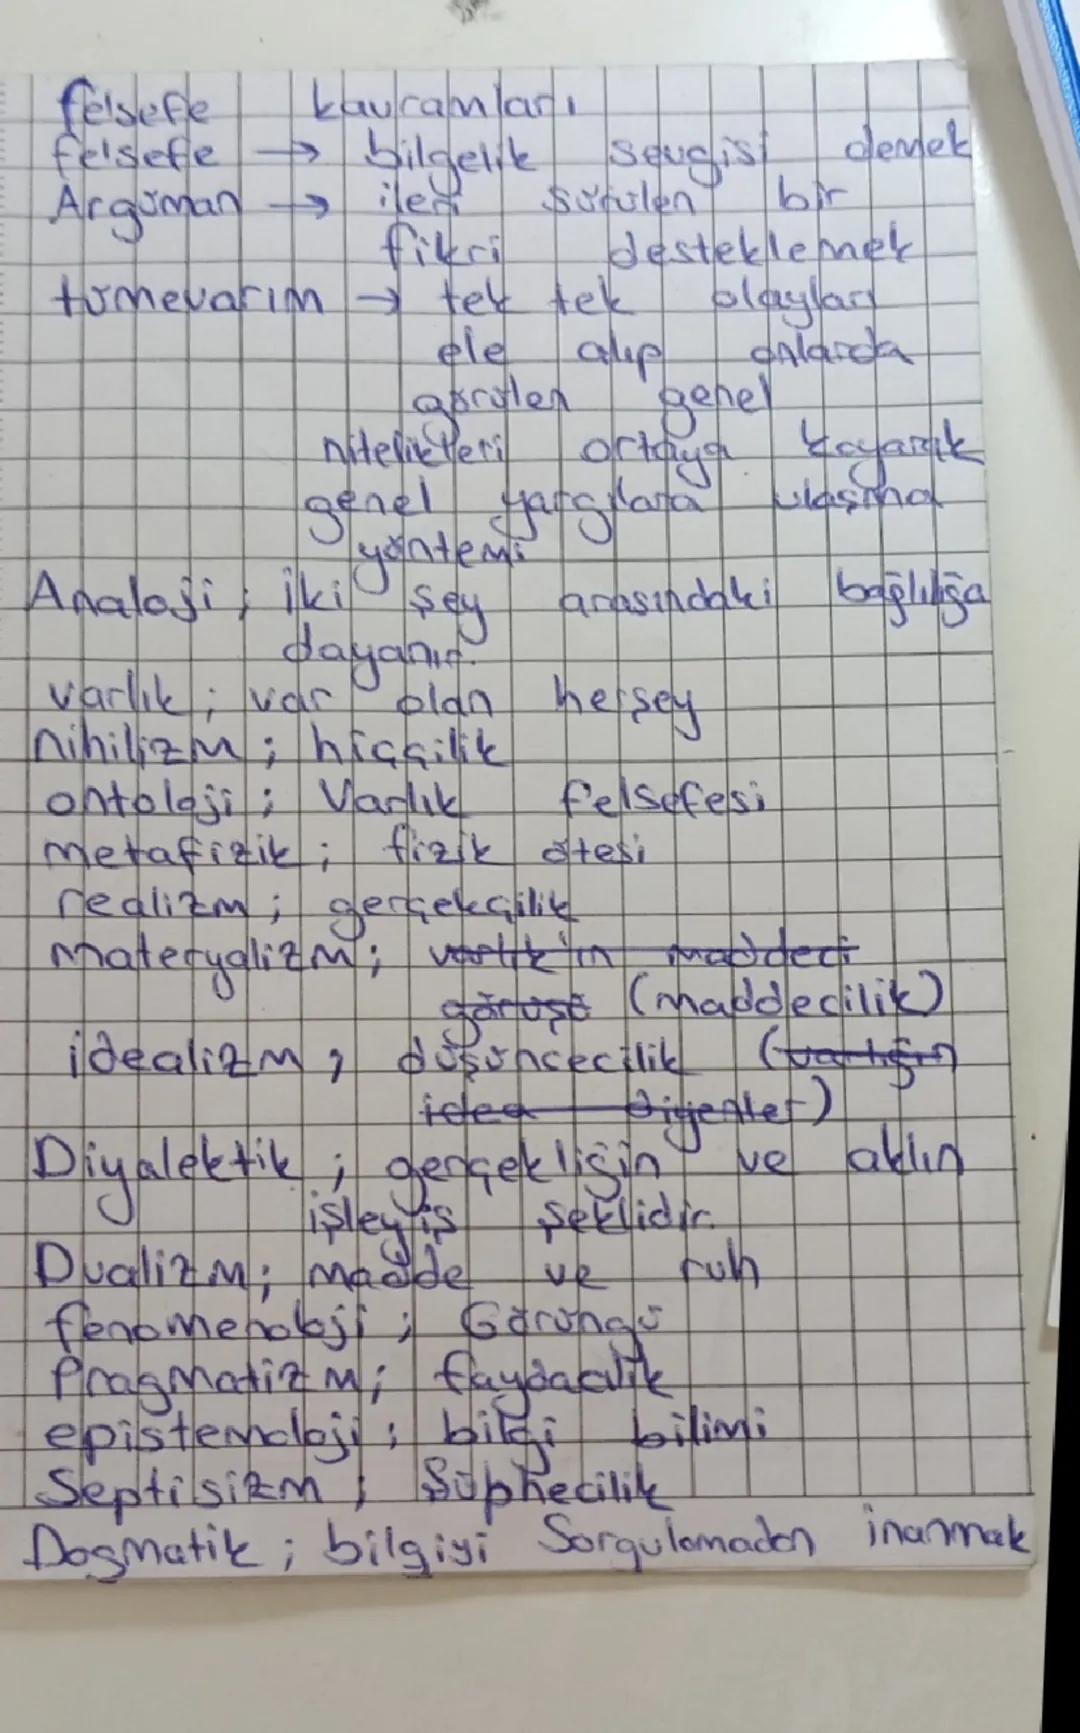 felsefe kavramları
felsefe → bilgelik sevgisi demek
Argüman → ileri sürülen bir
fikri desteklemek
tümevarım → tek tek olayları
ele alıp onlarda
görülen genel
nitelikleri ortaya koyarak
genel yargılara ulaşma
yöntemi
Analoji ; iki şey arasındaki bağlılığa
dayanır.
varlık ; var olan herşey
nihilizm ; hiççilik
ontoloji ; Varlık felsefesi
metafizik ; fizik ötesi
realizm ; gerçekçilik
materyalizm ; varlık'ın maddeci
görüşü (maddecilik)
idealizm ; düşüncecilik (varlığın
idea diyenler)
Diyalektik ; gerçekliğin ve aklın
işleyiş şeklidir.
Dualizm ; madde ve ruh
fenomenoloji ; Görüngü
Pragmatizm ; faydacılık
epistemoloji ; bilgi bilimi
Septisizm ; Şüphecilik
Dogmatik ; bilgiyi Sorgulamadan inanmak